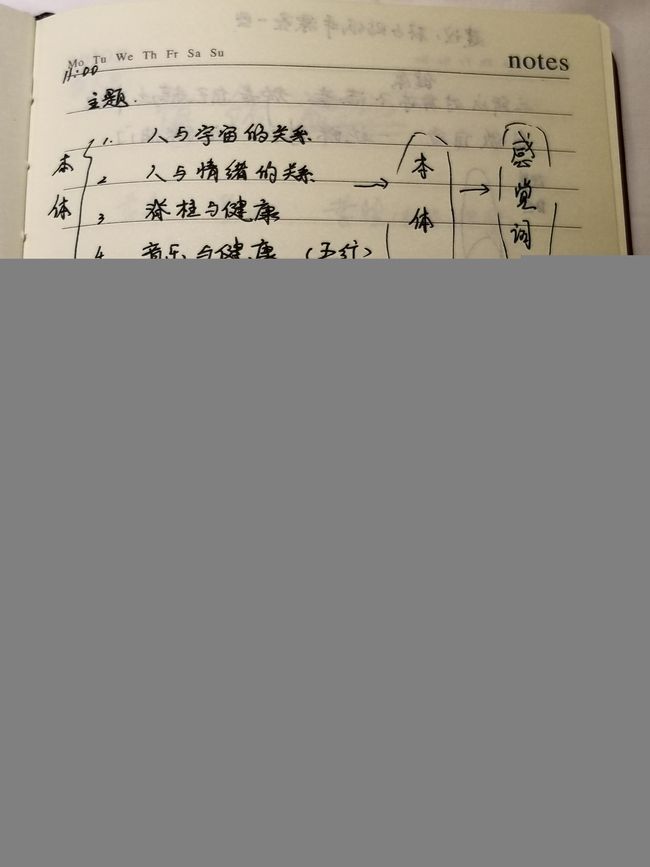 Mo Tu We Th Fr Sa Su
notes
11:00
主题.
本体
1. 人与宇宙的关系
2 人与情绪的关系
3 脊柱与健康
4. 音乐与健康 (五行)
→ 本体 → 感觉词